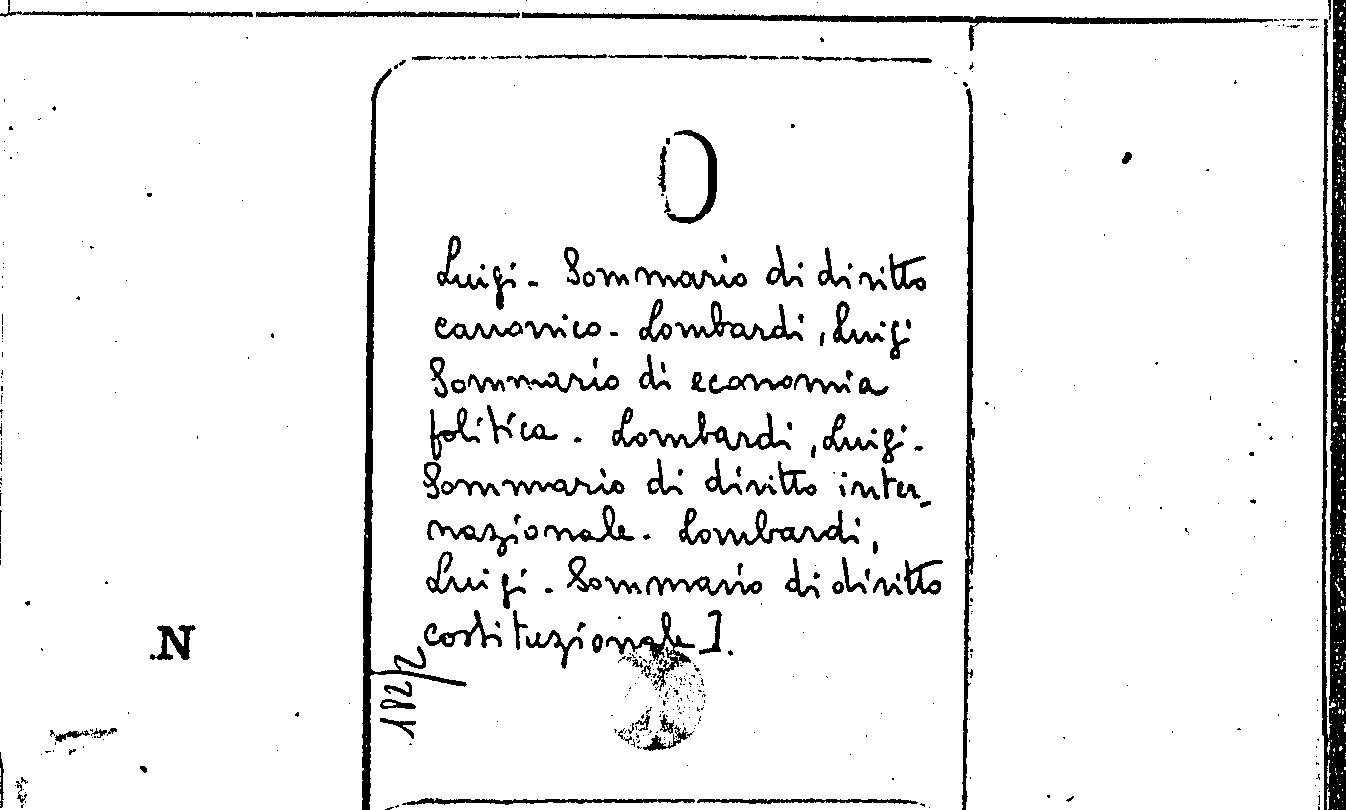 Luigi - Sommario di diritto
canonico - Lombardi, Luigi
Sommario di economia
politica. Lombardi, Luigi.
Sommario di diritto inter_
nazionale. Lombardi,
Luigi. Sommario di diritto
costituzionale].
N
182/2